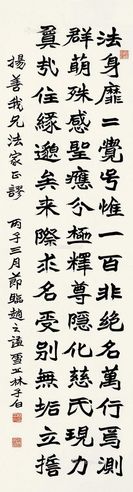 法身靡二覺号惟一百名萬行焉測
群萌殊感聖應分極釋尊隱化慈氏現力
冀哉住緣邈矣來際求名受別無垢立
揚善我兄法家正謬 丙子三月節臨趙之謙 林子白